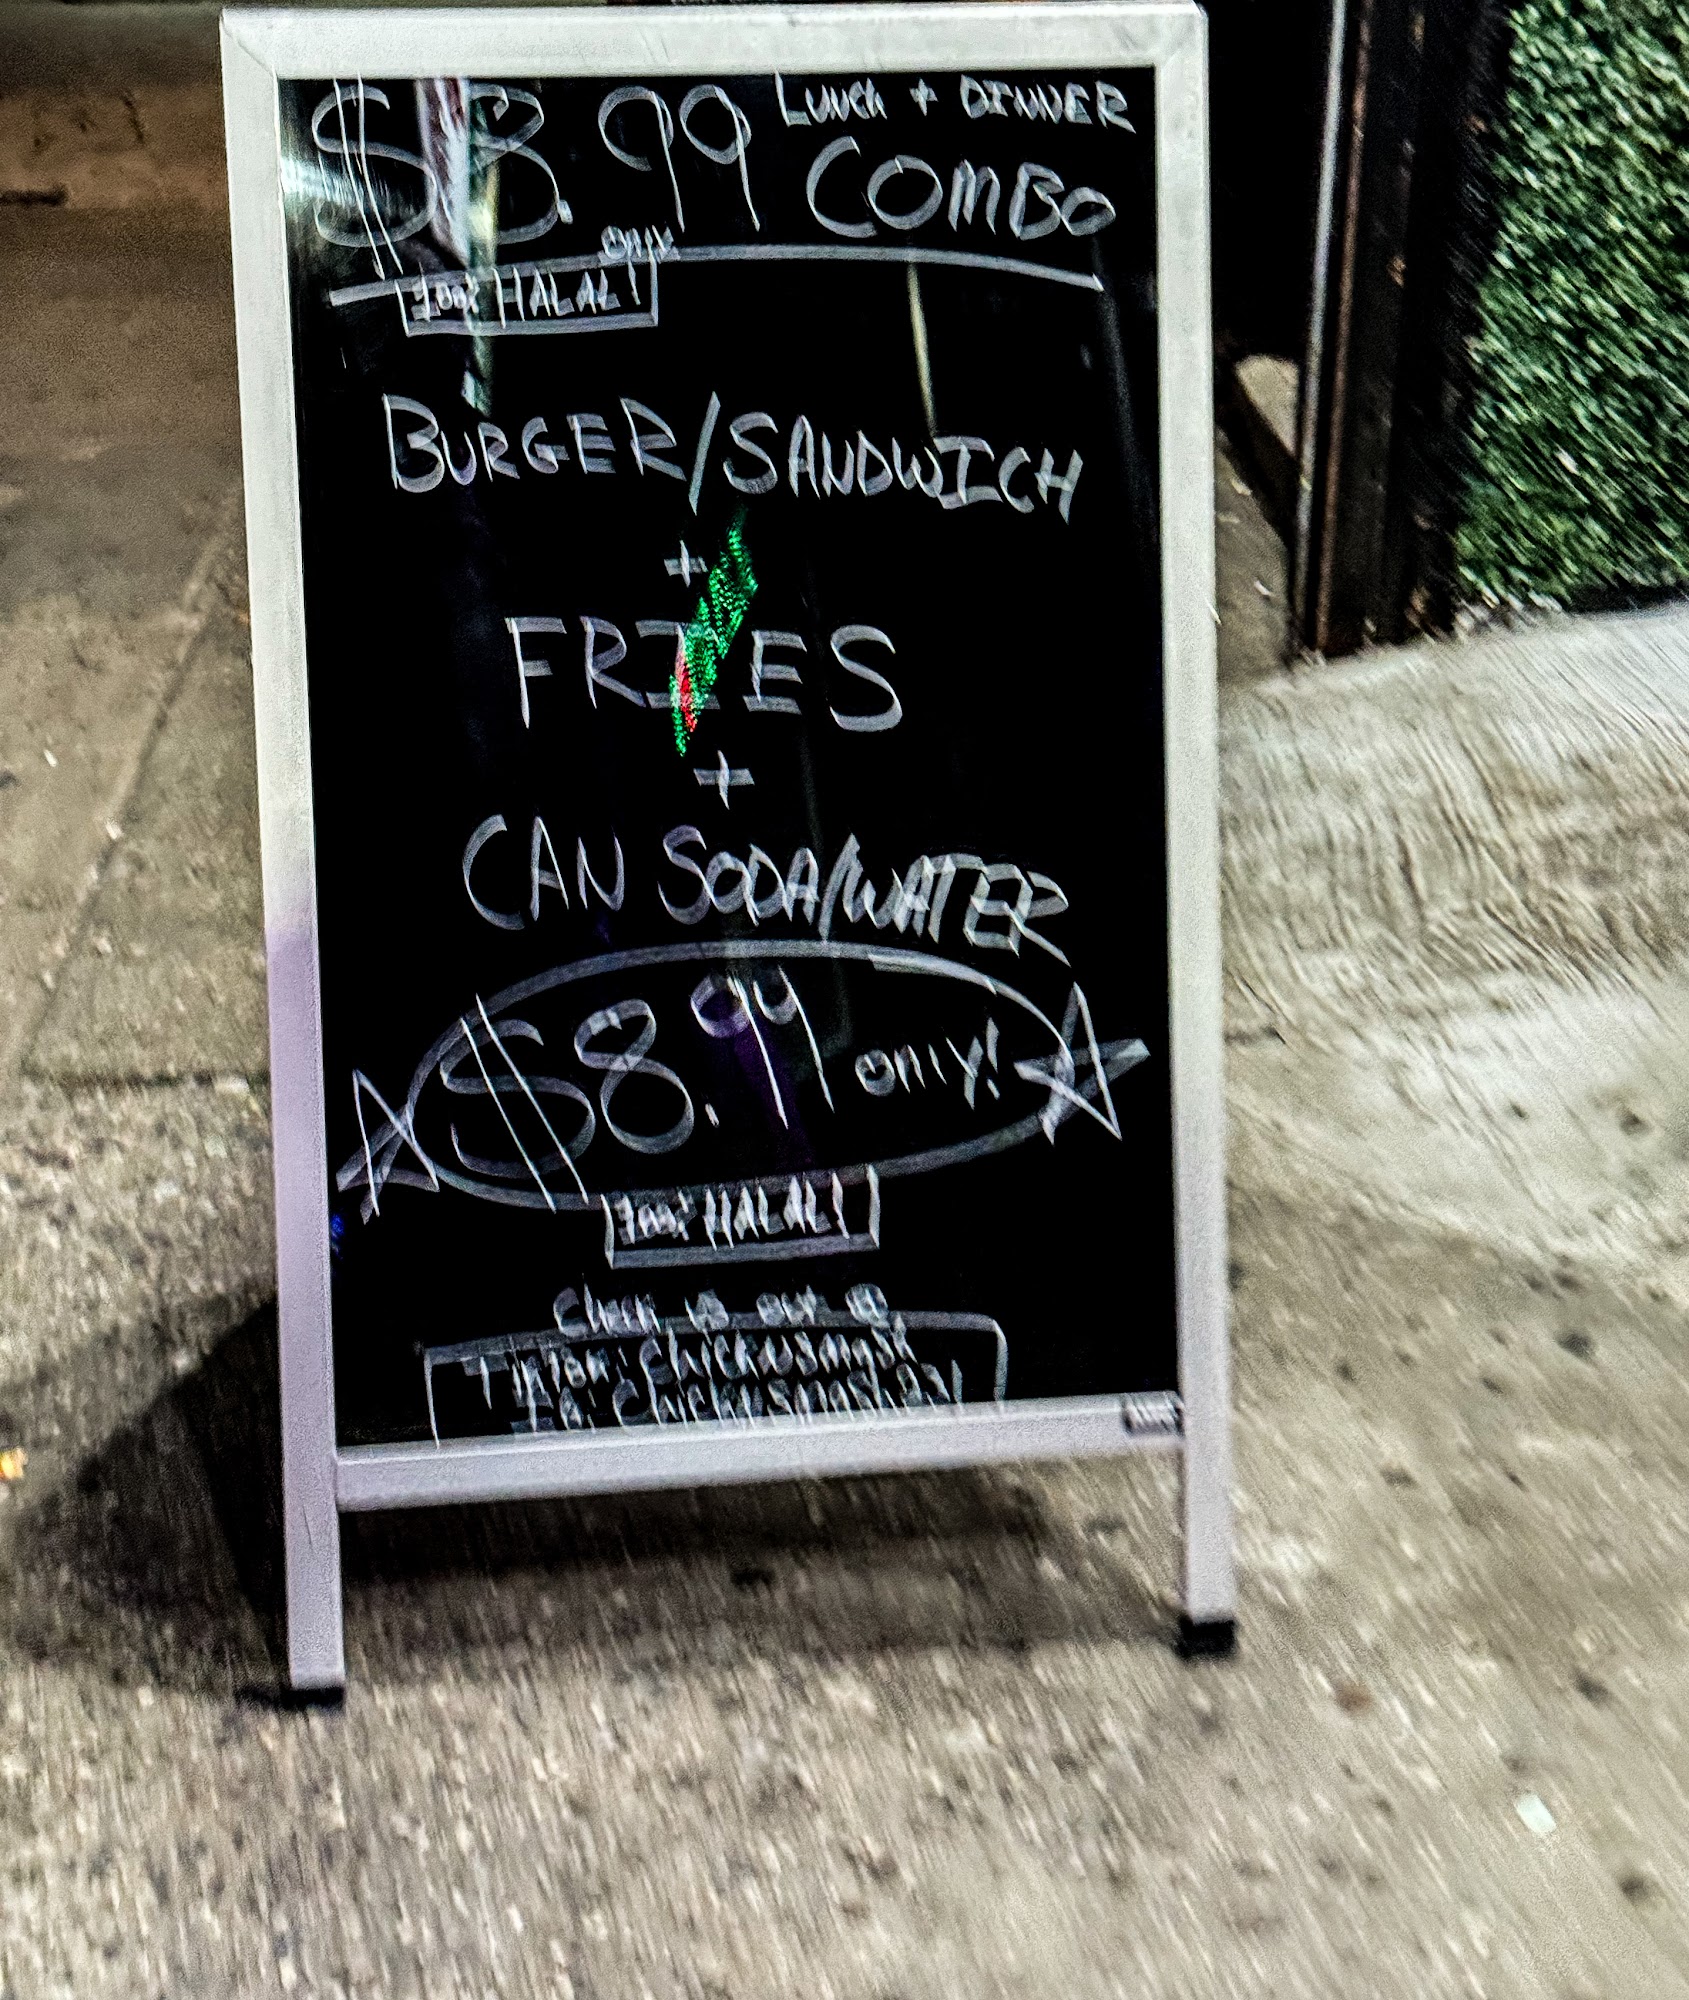 $8.99 LUNCH + DINNER
COMBO
only
100% HALAL!
BURGER/SANDWICH
+
FRIES
+
CAN SODA/WATER
$8.99 only!
100% HALAL!
Check us out @